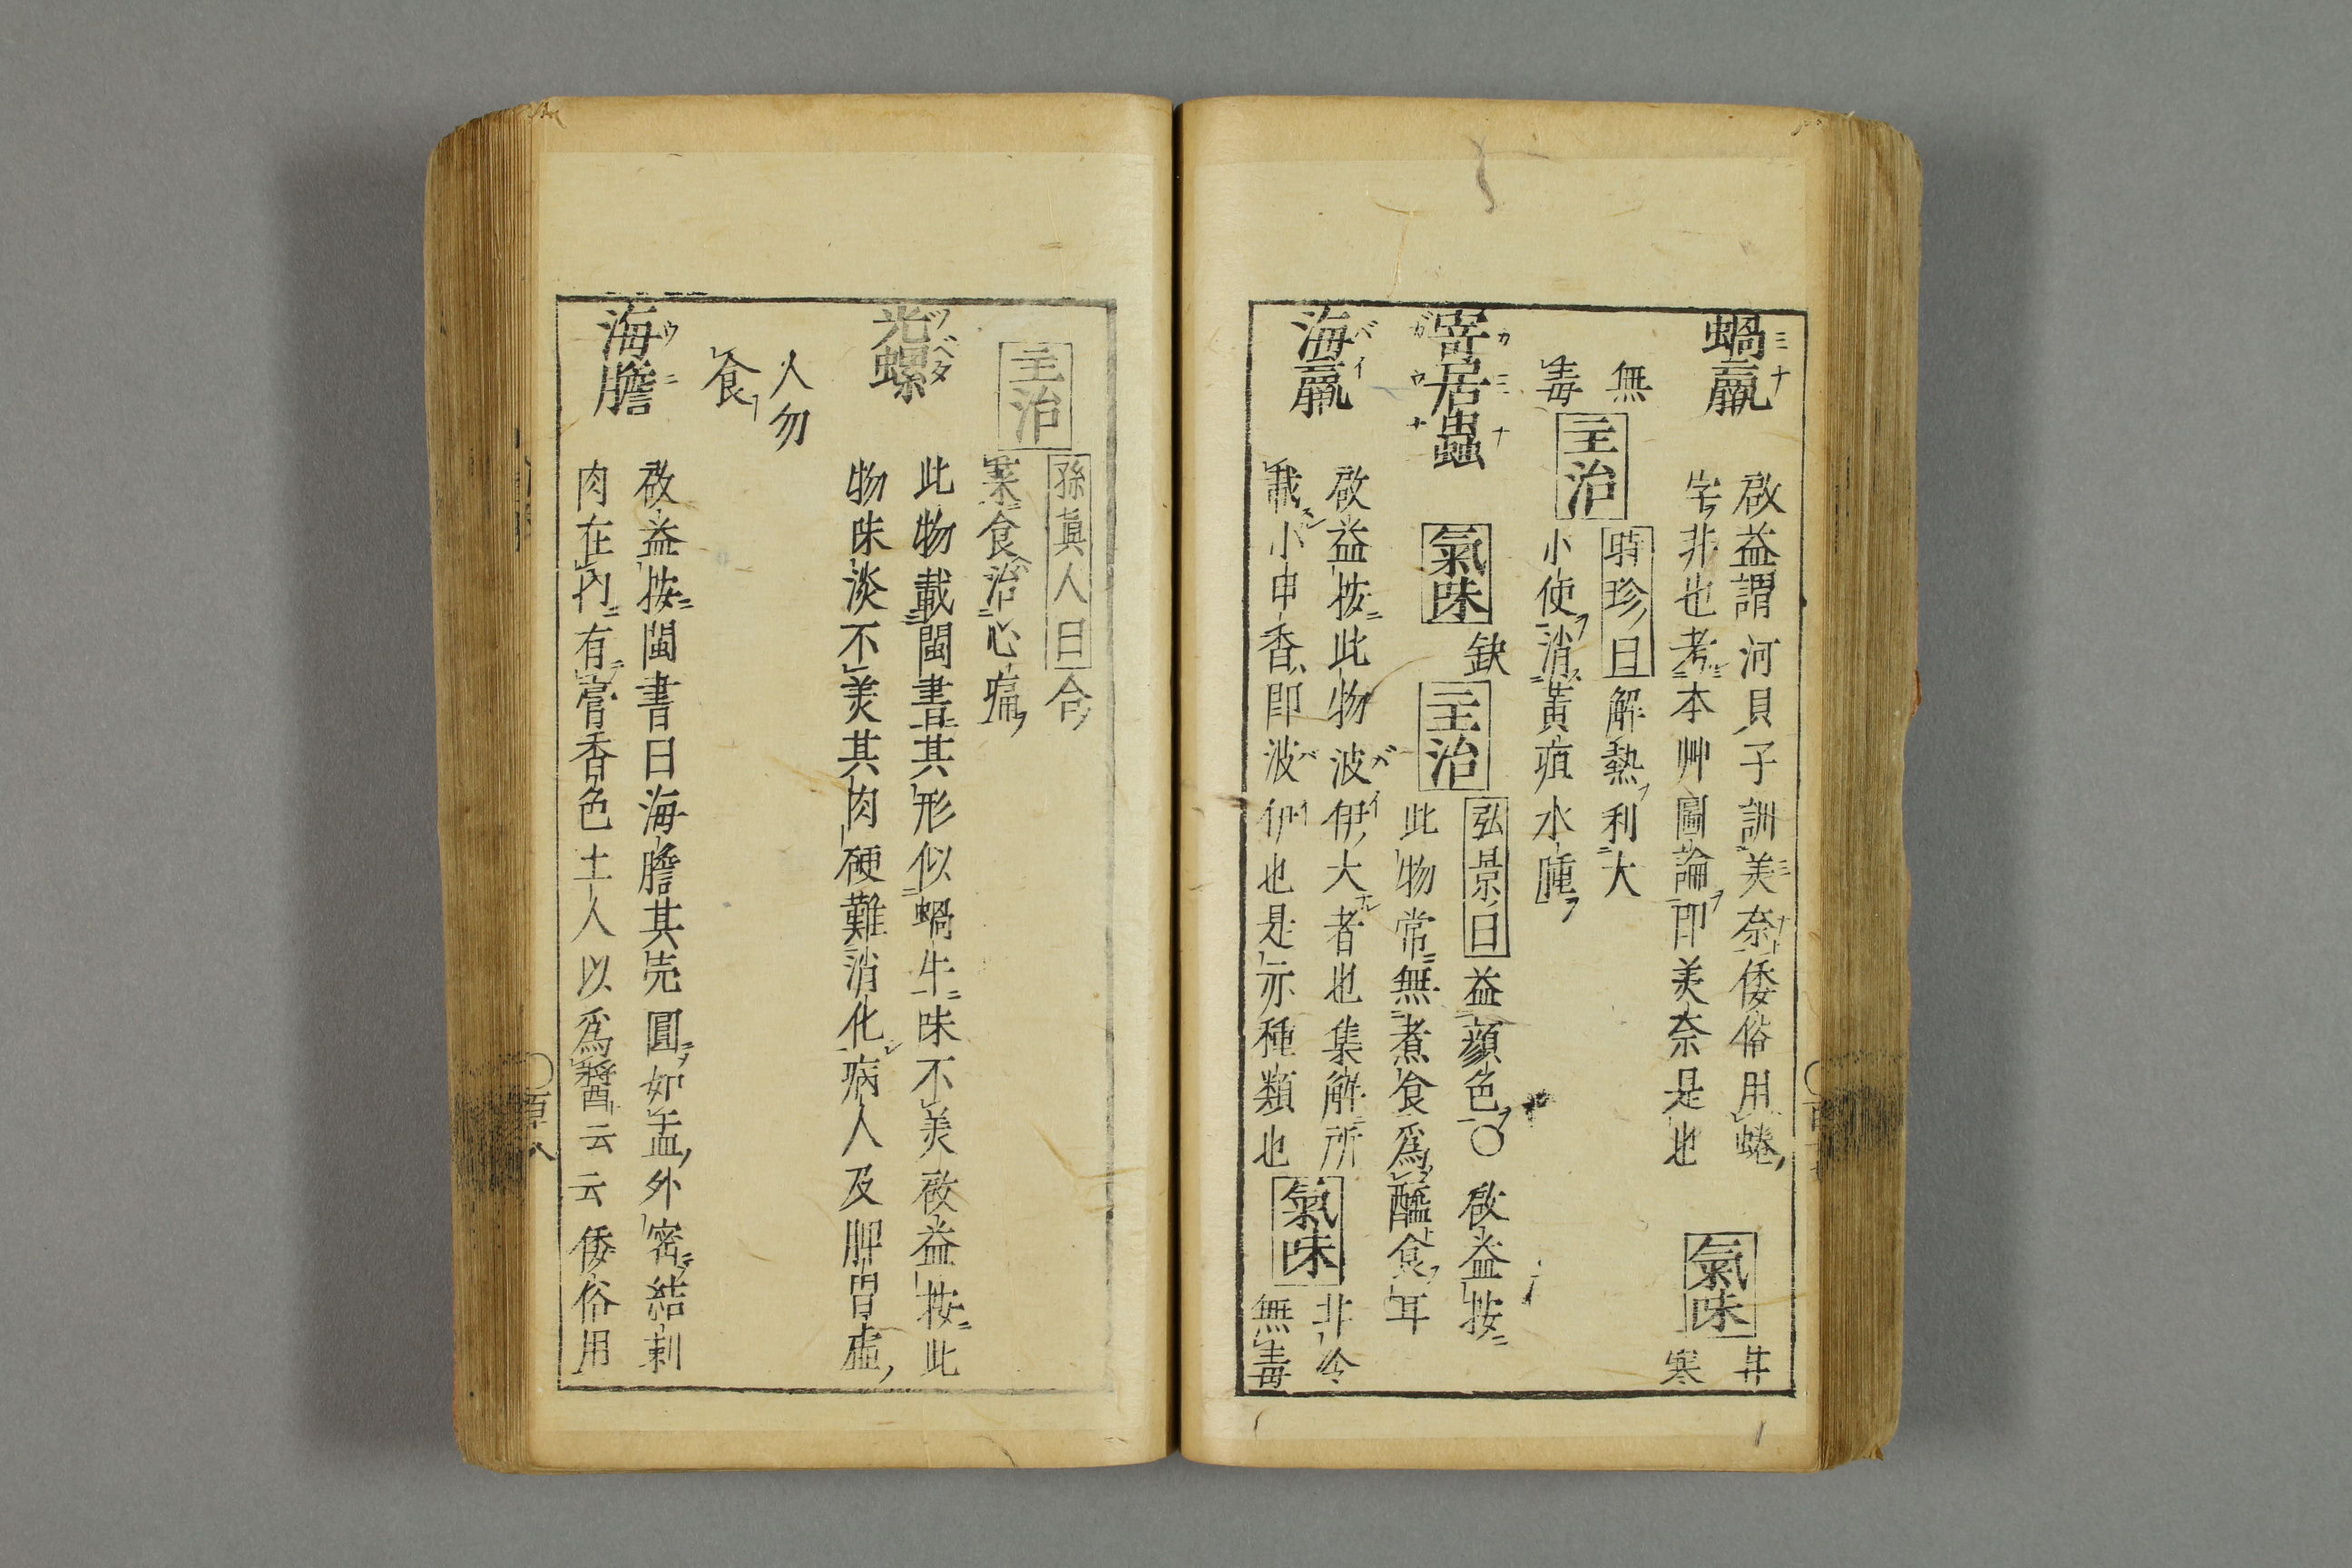 蝸蠃 啟益謂河貝子訓美奈倭俗用蜷
字非也考本艸圖論即美奈是也
氣味 甘寒
無毒
主治 時珍曰解熱利大
小使消黃疸水腫
寄居蟲 氣味 缺 主治 弘景曰益顏色○啟益按
此物常無煮食為醢食耳
海蠃 啟益按此物波伊大者也集解所
載小甲香即波伊也是亦種類也
氣味 非冷
無毒
主治 孫眞人曰合
菜食治心痛
光螺 此物載閩書其形似蝸牛味不美啟益按此
物味淡不美其肉硬難消化病人及脾胃虛
人勿
食
海膽 啟益按閩書曰海膽其壳圓如盂外密結刺
肉在內有膏香色土人以為醬云云倭俗用